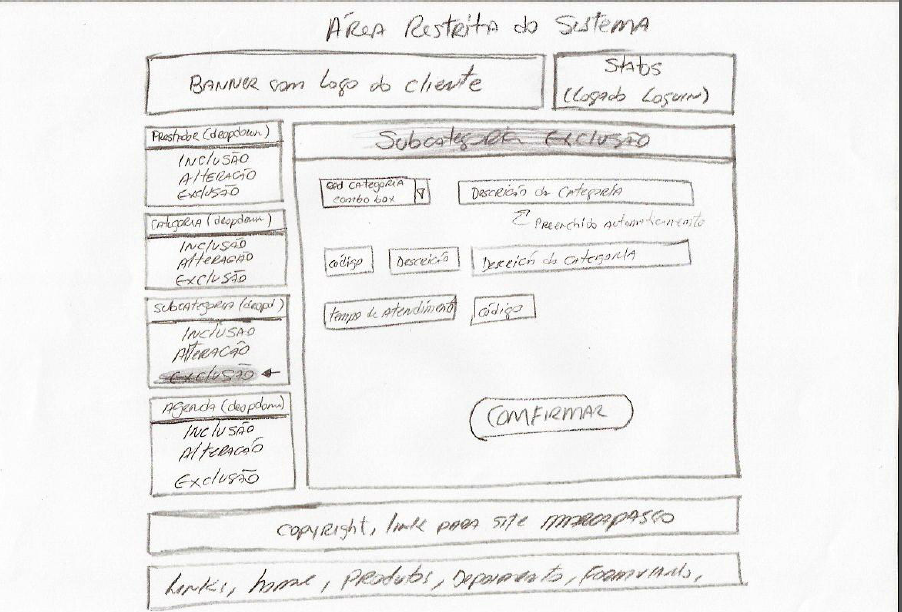 ÁREA RESTRITA do SISTEMA
BANNER com logo do cliente
Status
(Logado Loguin)
Prestador (dropdown)
INCLUSÃO
ALTERAÇÃO
EXCLUSÃO
CATEGORIA (dropdown)
INCLUSÃO
ALTERAÇÃO
EXCLUSÃO
SUBCATEGORIA (dropd)
INCLUSÃO
ALTERAÇÃO
EXCLUSÃO
AGENDA (dropdown)
INCLUSÃO
ALTERAÇÃO
EXCLUSÃO
Subcategoria EXCLUSÃO
CATEGORIA
combo box
Descrição da CATEGORIA
Preenchido AUTOMATICAMENTE
código
Descrição
Descrição da CATEGORIA
tempo de Atendimento
código
CONFIRMAR
COPYRIGHT, link PARA SITE MARCAPASSO
Links, home, PRODUTOS, Depoimento, FORMULARIO,